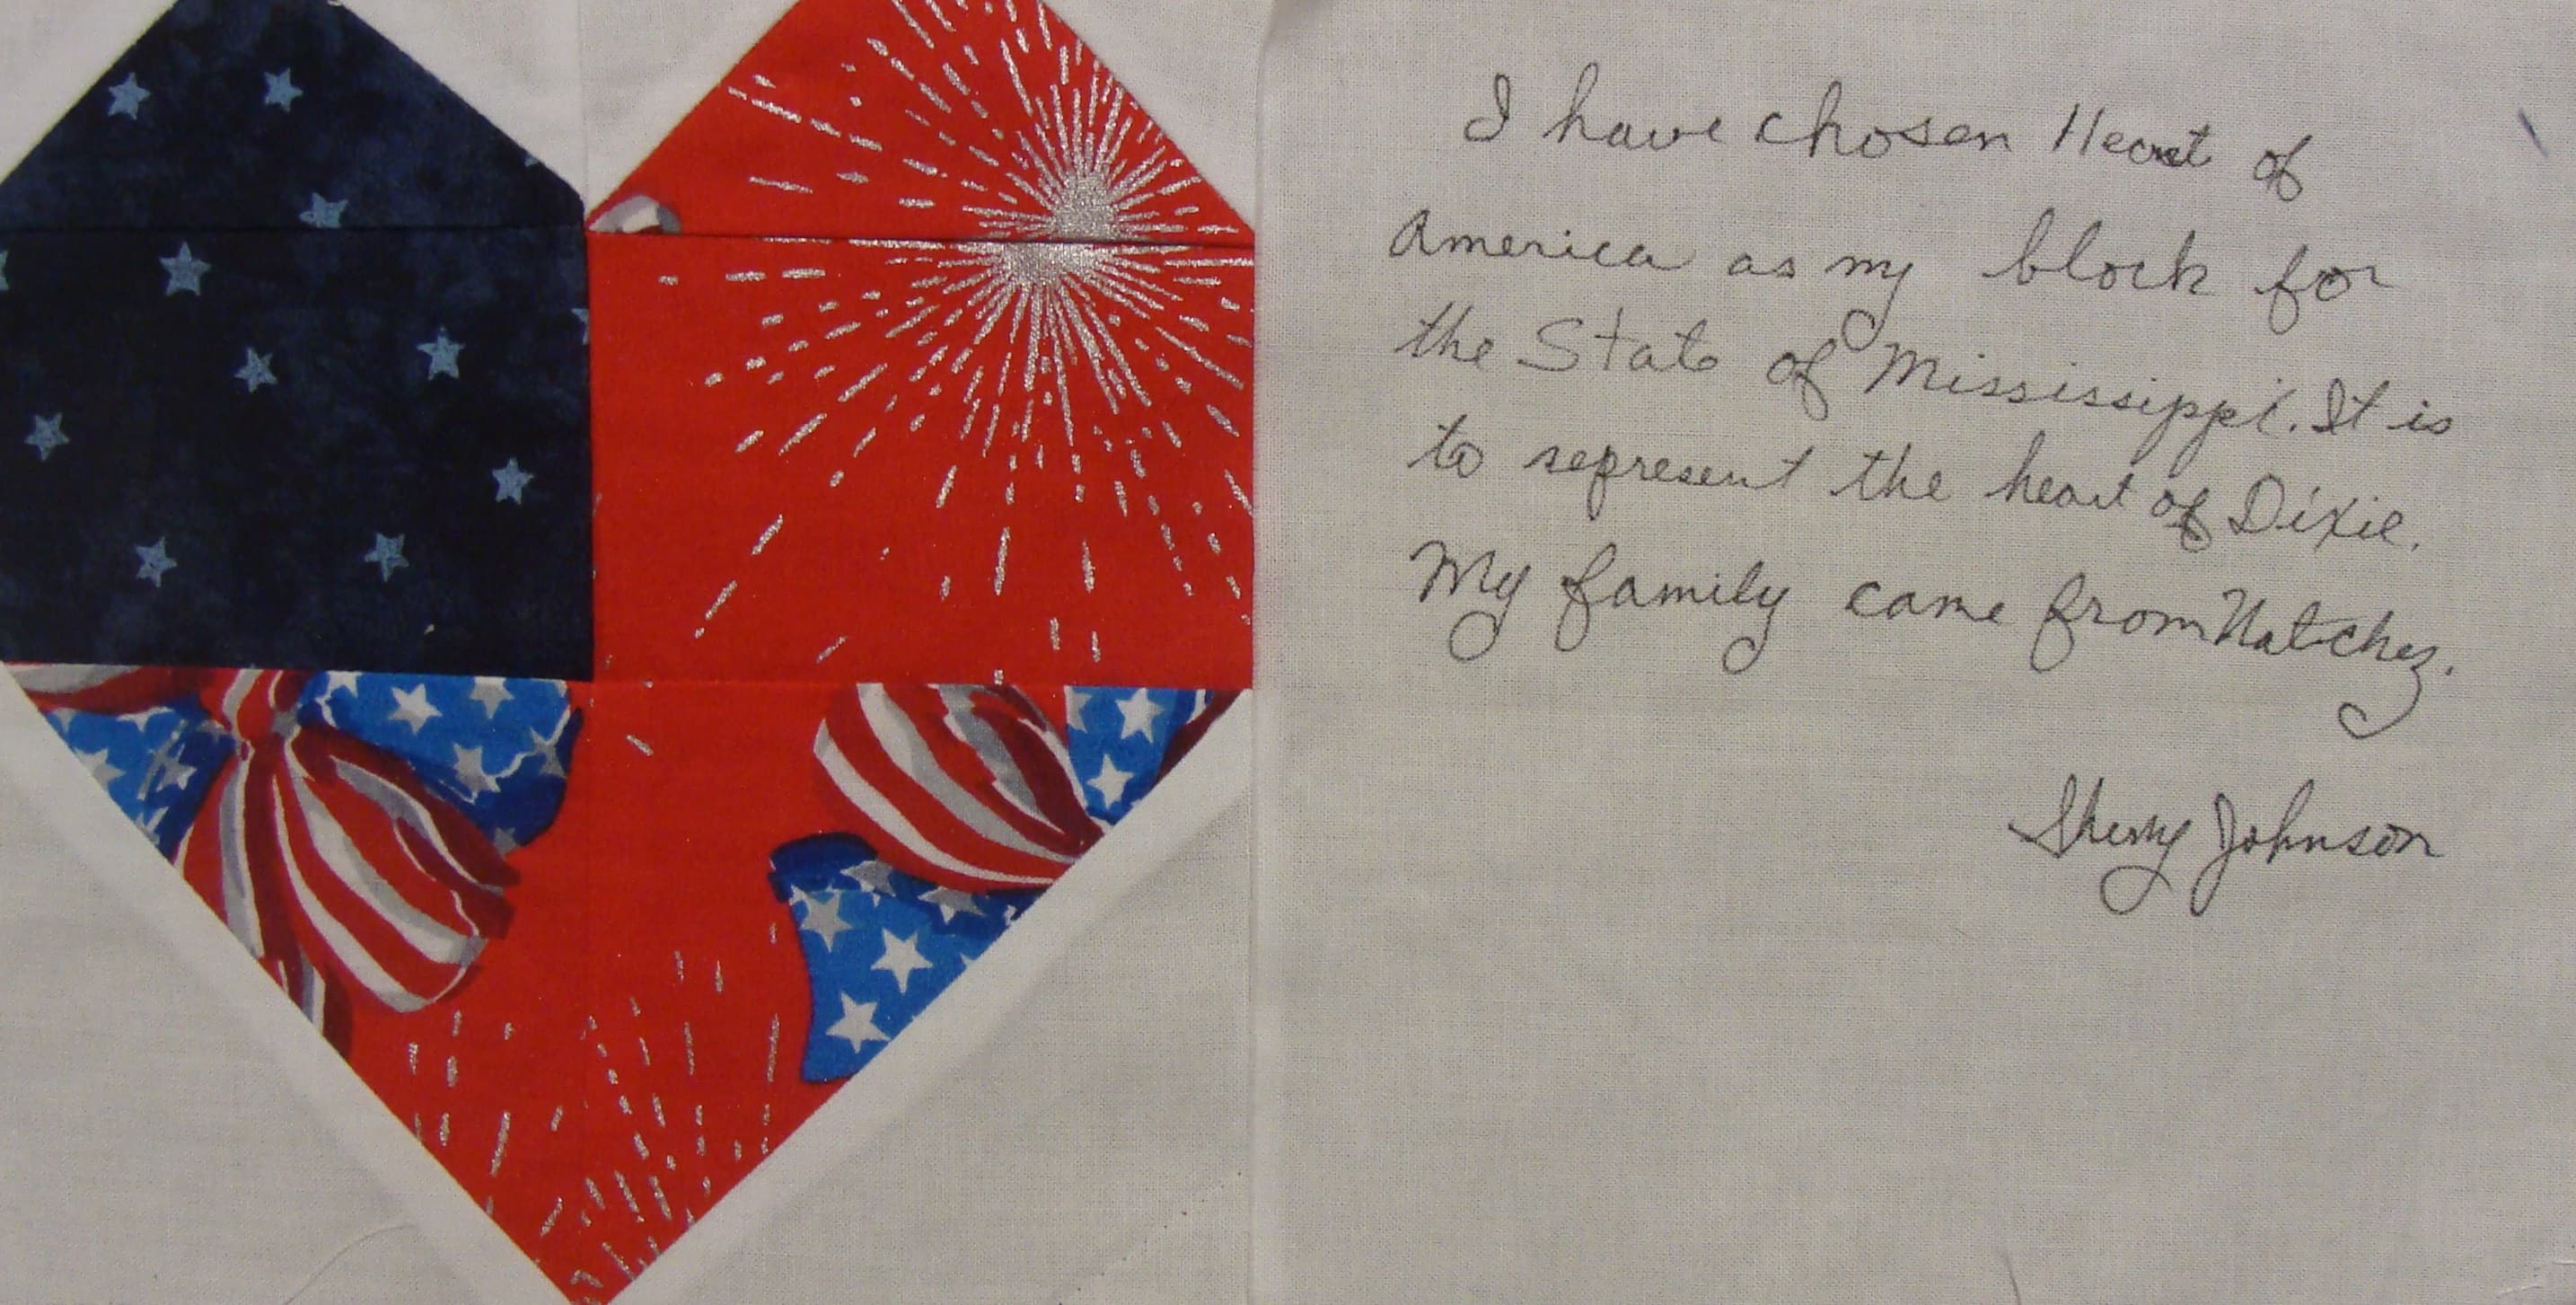 I have chosen Heart of
America as my block for
the State of Mississippi. It is
to represent the heart of Dixie.
My family came from Natchez.
Sherry Johnson